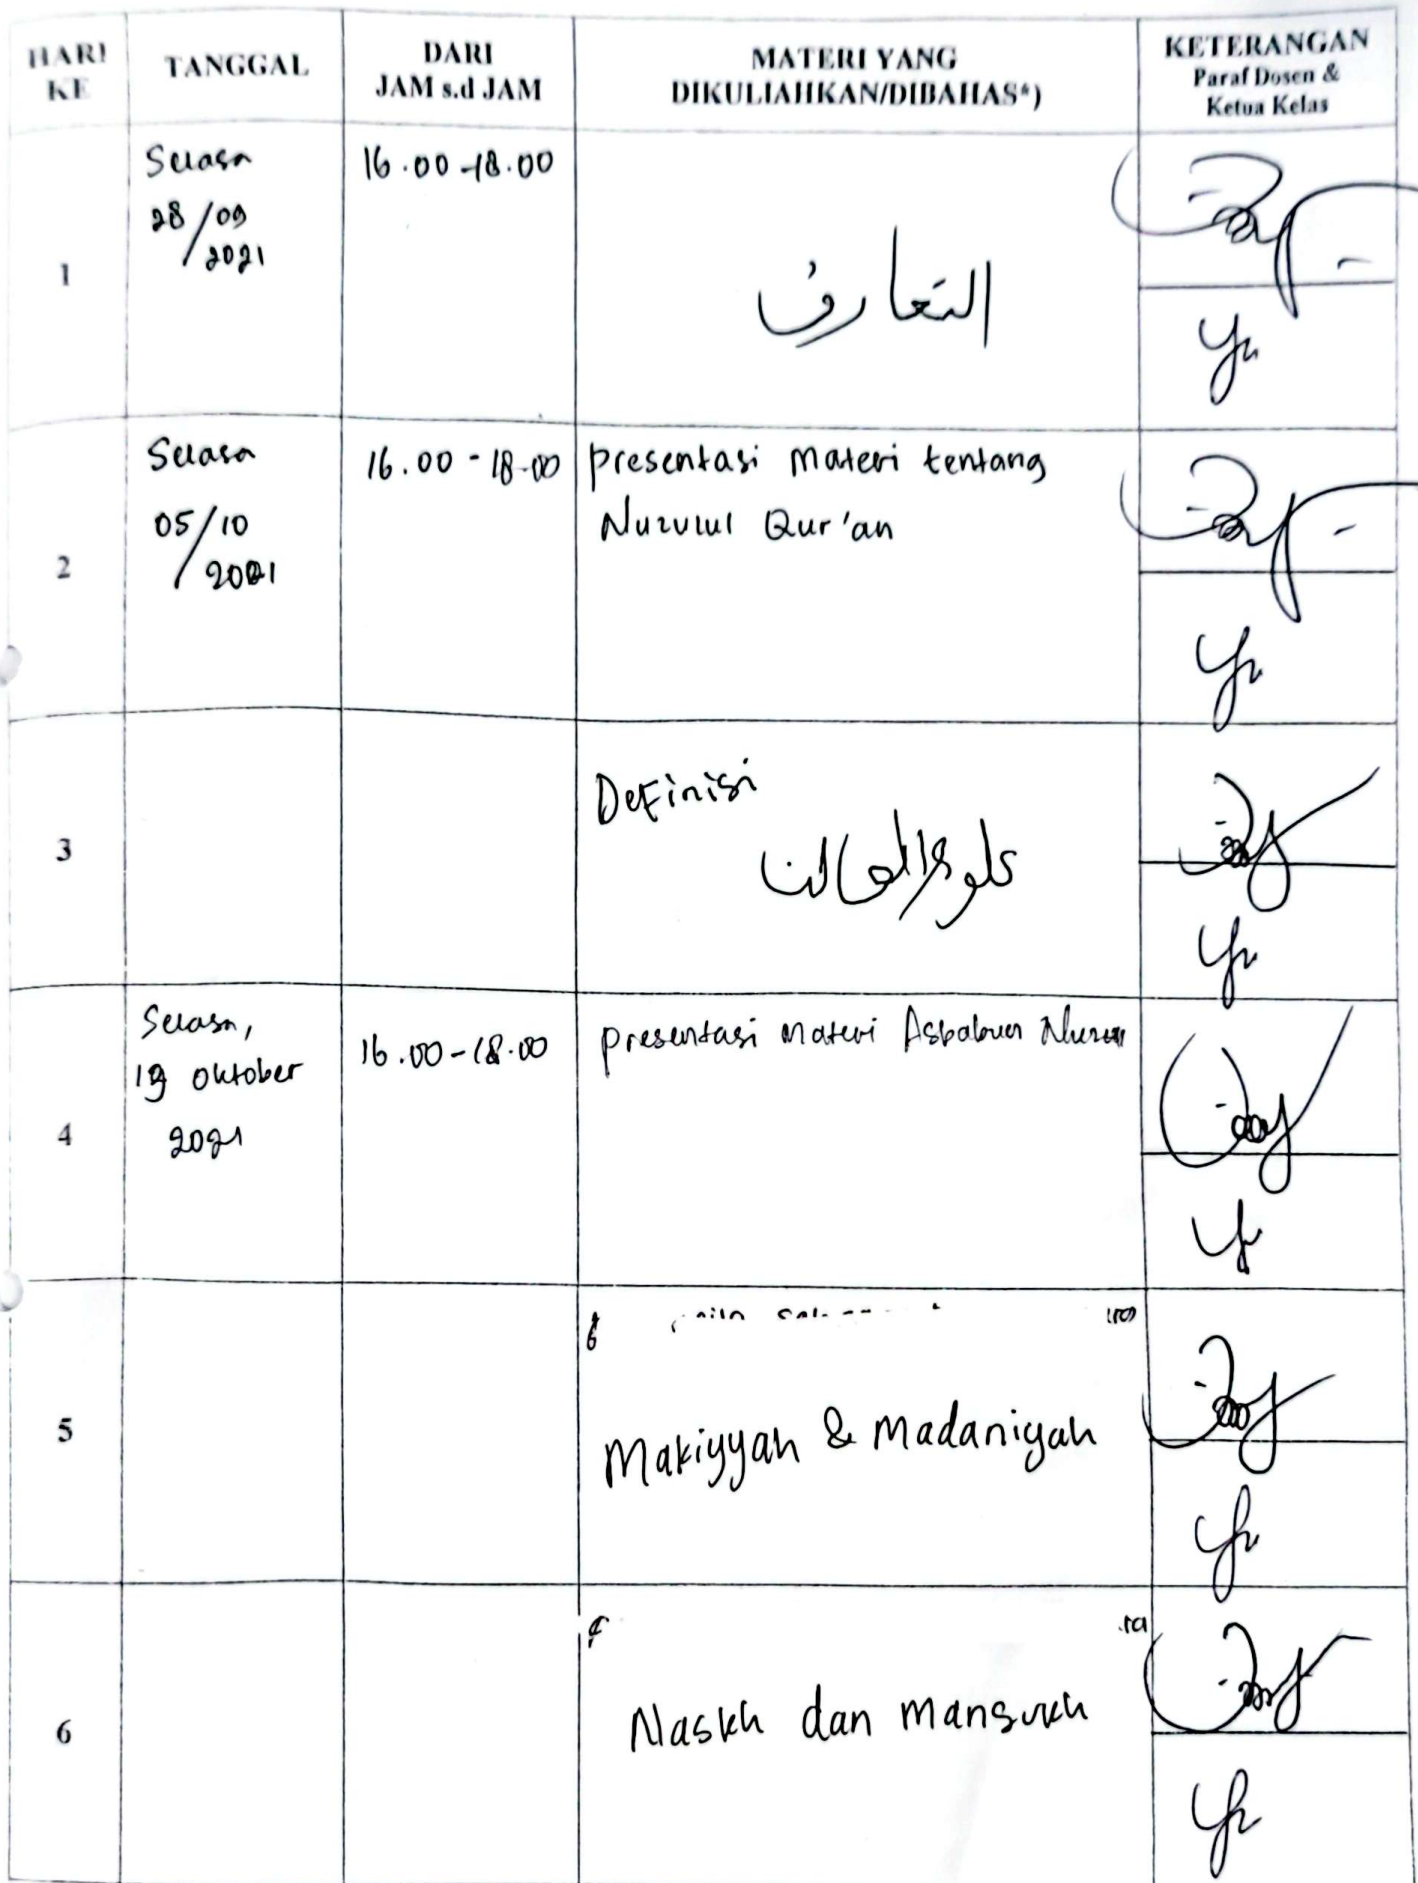 HARI KE
TANGGAL
DARI
JAM s.d JAM
MATERI YANG
DIKULIAHKAN/DIBAHAS*)
KETERANGAN
Paraf Dosen &
Ketua Kelas
1
Selasa
28/09
/2021
16.00-18.00
التعارف
2
Selasa
05/10
/2021
16.00-18.00
presentasi materi tentang
Nuzulul Qur'an
3
Definisi
4
Selasa,
19 Oktober
2021
16.00-18.00
presentasi materi Asbabun Nuzul
5
Makiyyah & Madaniyah
6
Naskh dan mansukh